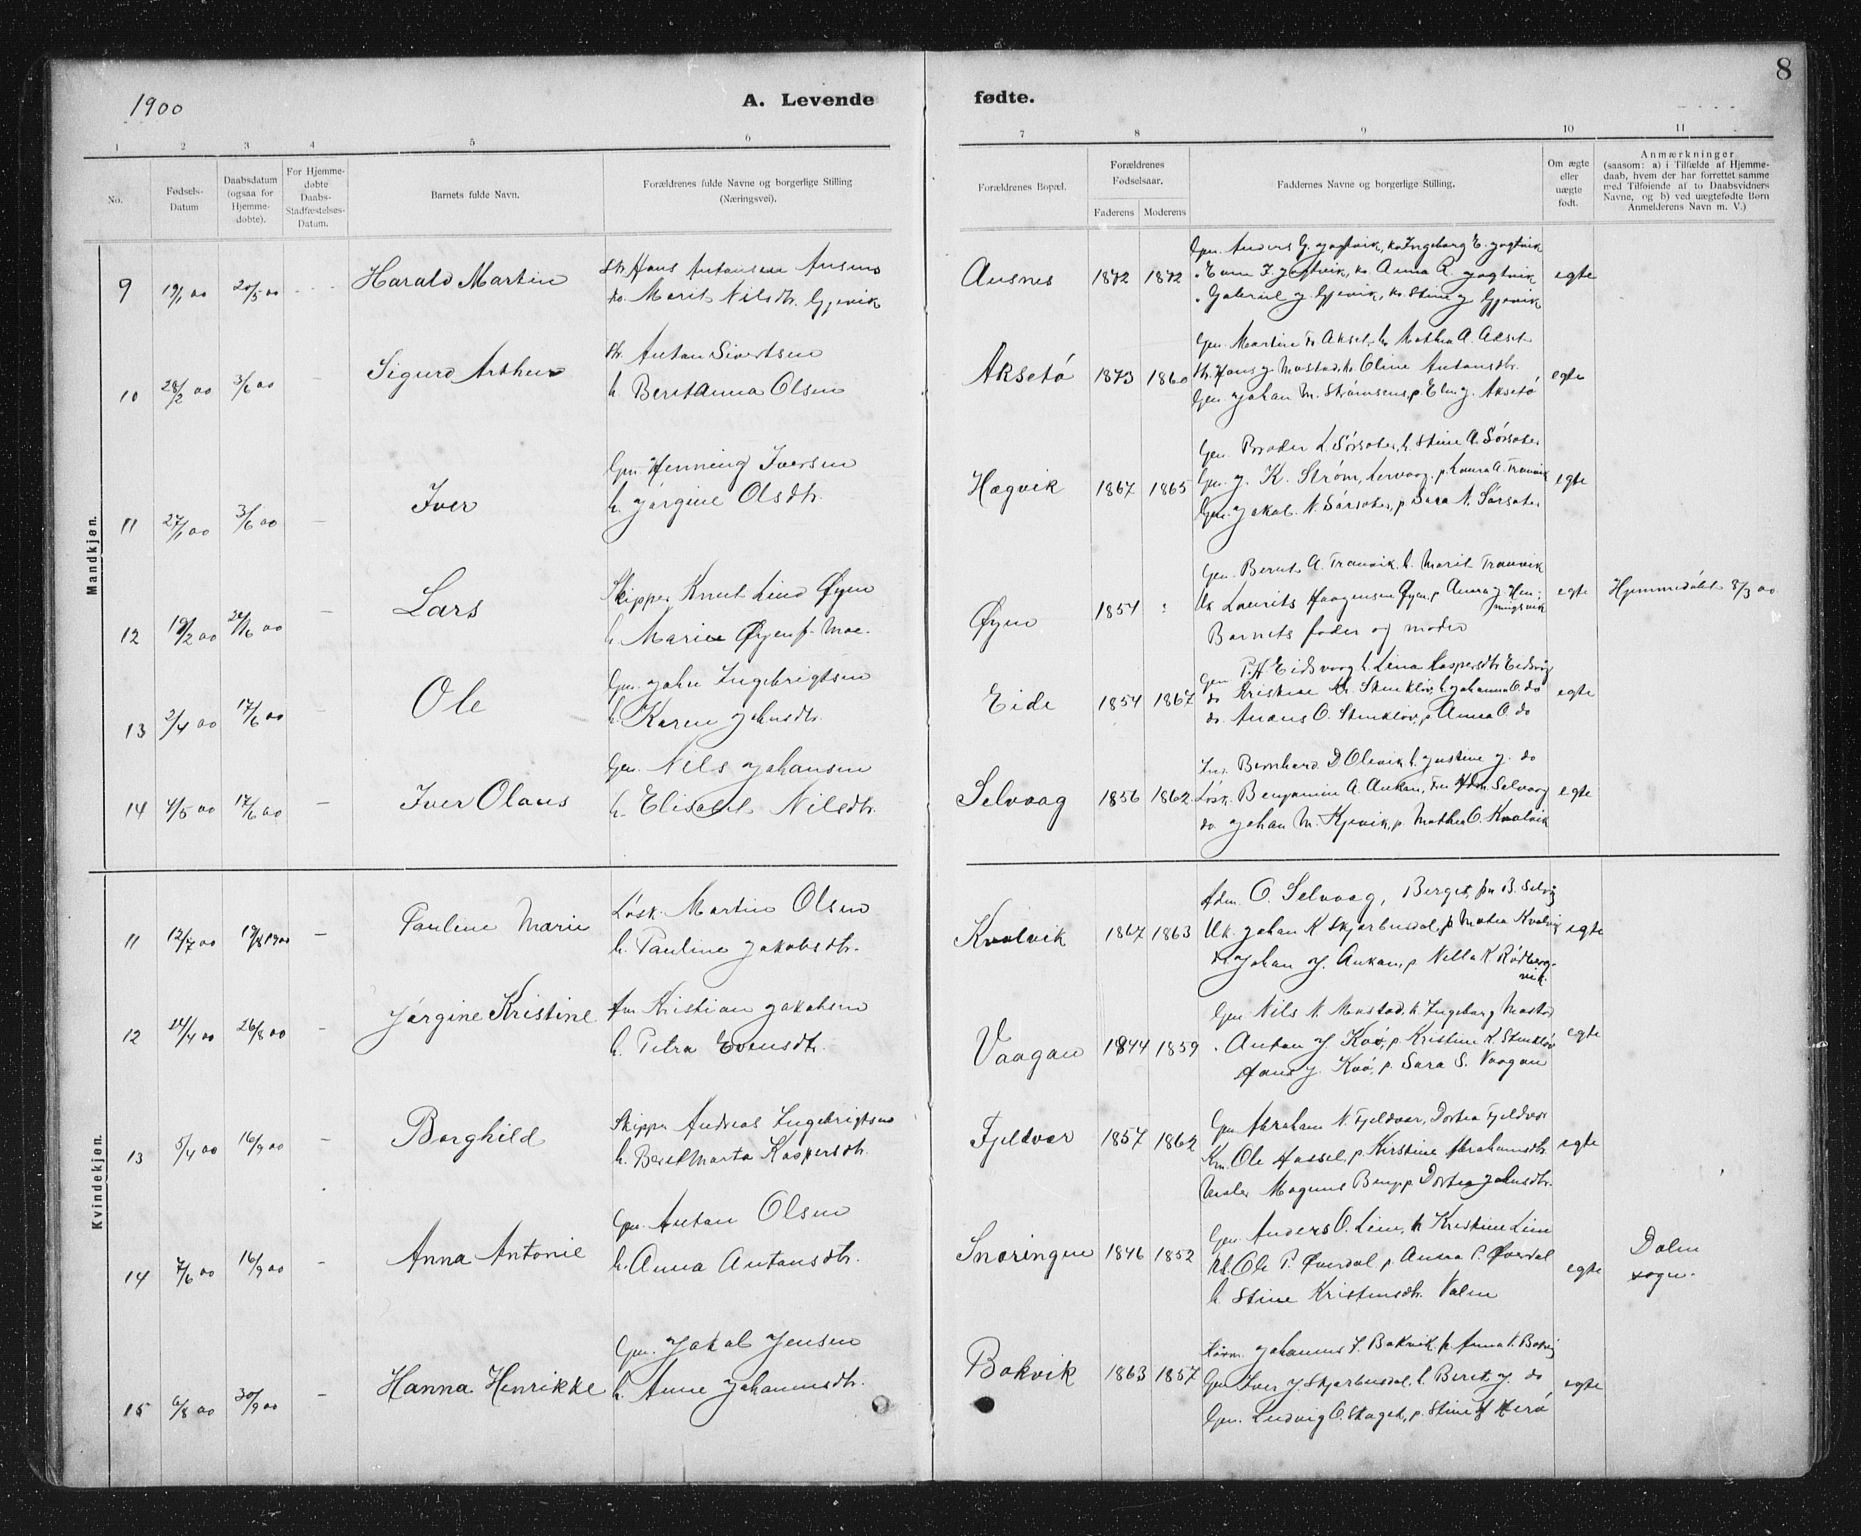 1900
A. Levende
fødte.
8
1 2 3 4 5 6 7 8 9 10 11
No.
Fødsels-
Datum
Daabsdatum
(ogsaa for
Hjemme-
døbte).
For Hjemme-
døbte
Daabs-
Stadfæstelses-
Datum.
Barnets fulde Navn.
Forældrenes fulde Navne og borgerlige Stilling
(Næringsvei).
Forældrenes Bopæl.
Forældrenes
Fødselsaar.
Faderens Moderens
Faddernes Navne og borgerlige Stilling.
Om ægte
eller
uægte
født.
Anmærkninger
(saasom: a) i Tilfælde af Hjemme-
daab, hvem der har forrettet samme
med Tilføiende af to Daabsvidners
Navne, og b) ved uægtefødte Børn
Anmelderens Navn m. V.)
Mandkjøn.
9 19/1 00 20/5 00 Harald Martin
Hans Antonsen
Marit Nilsdtr. Gjøvik
Ausnes 1872 1872
Anders G. Jogtvik, Ingeborg E. Jogtvik
Anna R. Jogtvik
Gabriel J. Gjøvik, Stine J. Gjøvik
egte
10 28/2 00 3/6 00 – Sigurd Arthur
Anton Sivertsen
h. Beret Anna Olsen
Aksetø 1873 1860
Gm. Martin Akset, h. Mathea A. Akset
Hans J. Mostad, Oline Antonsdtr.
Gm. Johan M. Strømsens, p. Elen J. Aksetø
egte
11 27/1 00 3/6 00 – Iver
Gm. Henning Iversen
h. Jørgine Olsdtr.
Hægvik 1867 1865
Gm. Broder L. Sørsater, h. Stine A. Sørsater
Gm. J. K. Strøm, Lervaag, p. Laura A. Tranvik
Gm. Jakob N. Sørsater, p. Sara N. Sørsater
egte
12 19/2 00 24/6 00 – Lars
Skipper Knut Lind Øyen
h. Marie Øyen f. Moe.
Øyen 1854 :
Gm. Bernt A. Tranvik, h. Marit Tranvik
Uk. Laurits Haagensen Øyen, p. Anna J. Hen-
ningsvik
Barnets fader og moder
egte Hjemmedøbt 8/3 00
13 2/4 00 17/6 00 – Ole
Gm. John Ingebrigtsen
h. Karen Johnsdtr.
Eide 1854 1867
Gm. P. H. Eidsvaag h. Lina Kaspersdtr Eidsvåg
do Kristine Kr. Stinkløv, h. Johanna O. do
do. Anans O. Stinkløv, p. Anna O. do
egte
14 4/5 00 17/6 00 – Iver Olaus
Gm. Nils Johansen
h. Elisabet Nilsdtr.
Selvaag 1856 1862
Bernhard D. Olsvik h. Justine J. do
Løsk. Benjamin A. Aukan, Selvaag
do Johan M. Kjøvik, p. Mathea O. Kvalvik
egte
Kvindekjøn.
11 12/7 00 19/8 1900 – Pauline Marie
Løsk. Martin Olsen
h. Pauline Jakobsdtr.
Kvalvik 1867 1863
Adm. O. Selvaag, Berget, B. Selvåg
Uk. Johan K. Skjørbusdal, p. Matea Kvalvig
Johan J. Aukan, p. Nella K. Rødberg-
vik.
egte
12 24/4 00 26/8 00 – Jørgine Kristine
Kristian Jakobsen
h. Petra Evensdtr.
Vaagan 1844 1859
Gm Nils N. Mostad, h. Ingeborg Mostad
Anton J. Kvø, p. Kristine K. Stinkløv
Hans J. Kvø, p. Sara S. Vaagan
egte
13 5/4 00 16/9 00 – Borghild
Skipper Andreas Ingebrigtsen
h. Beret Marta Kaspersdtr.
Fjeldvær 1857 1862
Gm Abraham N. Fjeldvær, Dortea Fjeldvær
Km. Ole Hassel, p. Kirstine Abrahamsdtr.
Maler Magnus Bang p. Dortea Johnsdtr.
egte
14 7/6 00 16/9 00 – Anna Antonie
Gm. Anton Olsen
h. Anna Antonsdtr.
Snøringen 1846 1852
Gm. Anders O. Lien, h. Kristine Lien
Uk. Ole P. Øverdal p. Anna P. Øverdal
h. Stine Kristensdtr. Valen
egte
Dalen
sogn.
15 6/8 00 30/9 00 – Hanna Henrikke
Gm. Jakob Jensen
h. Anne Johannesdtr.
Bakvik 1863 1857
Johannes J. Bakvik, h. Anna
Gm. Iver J. Skjørbusdal, h. Beret J. do
Gm. Ludvig O. Skaget, p. Stine
egte